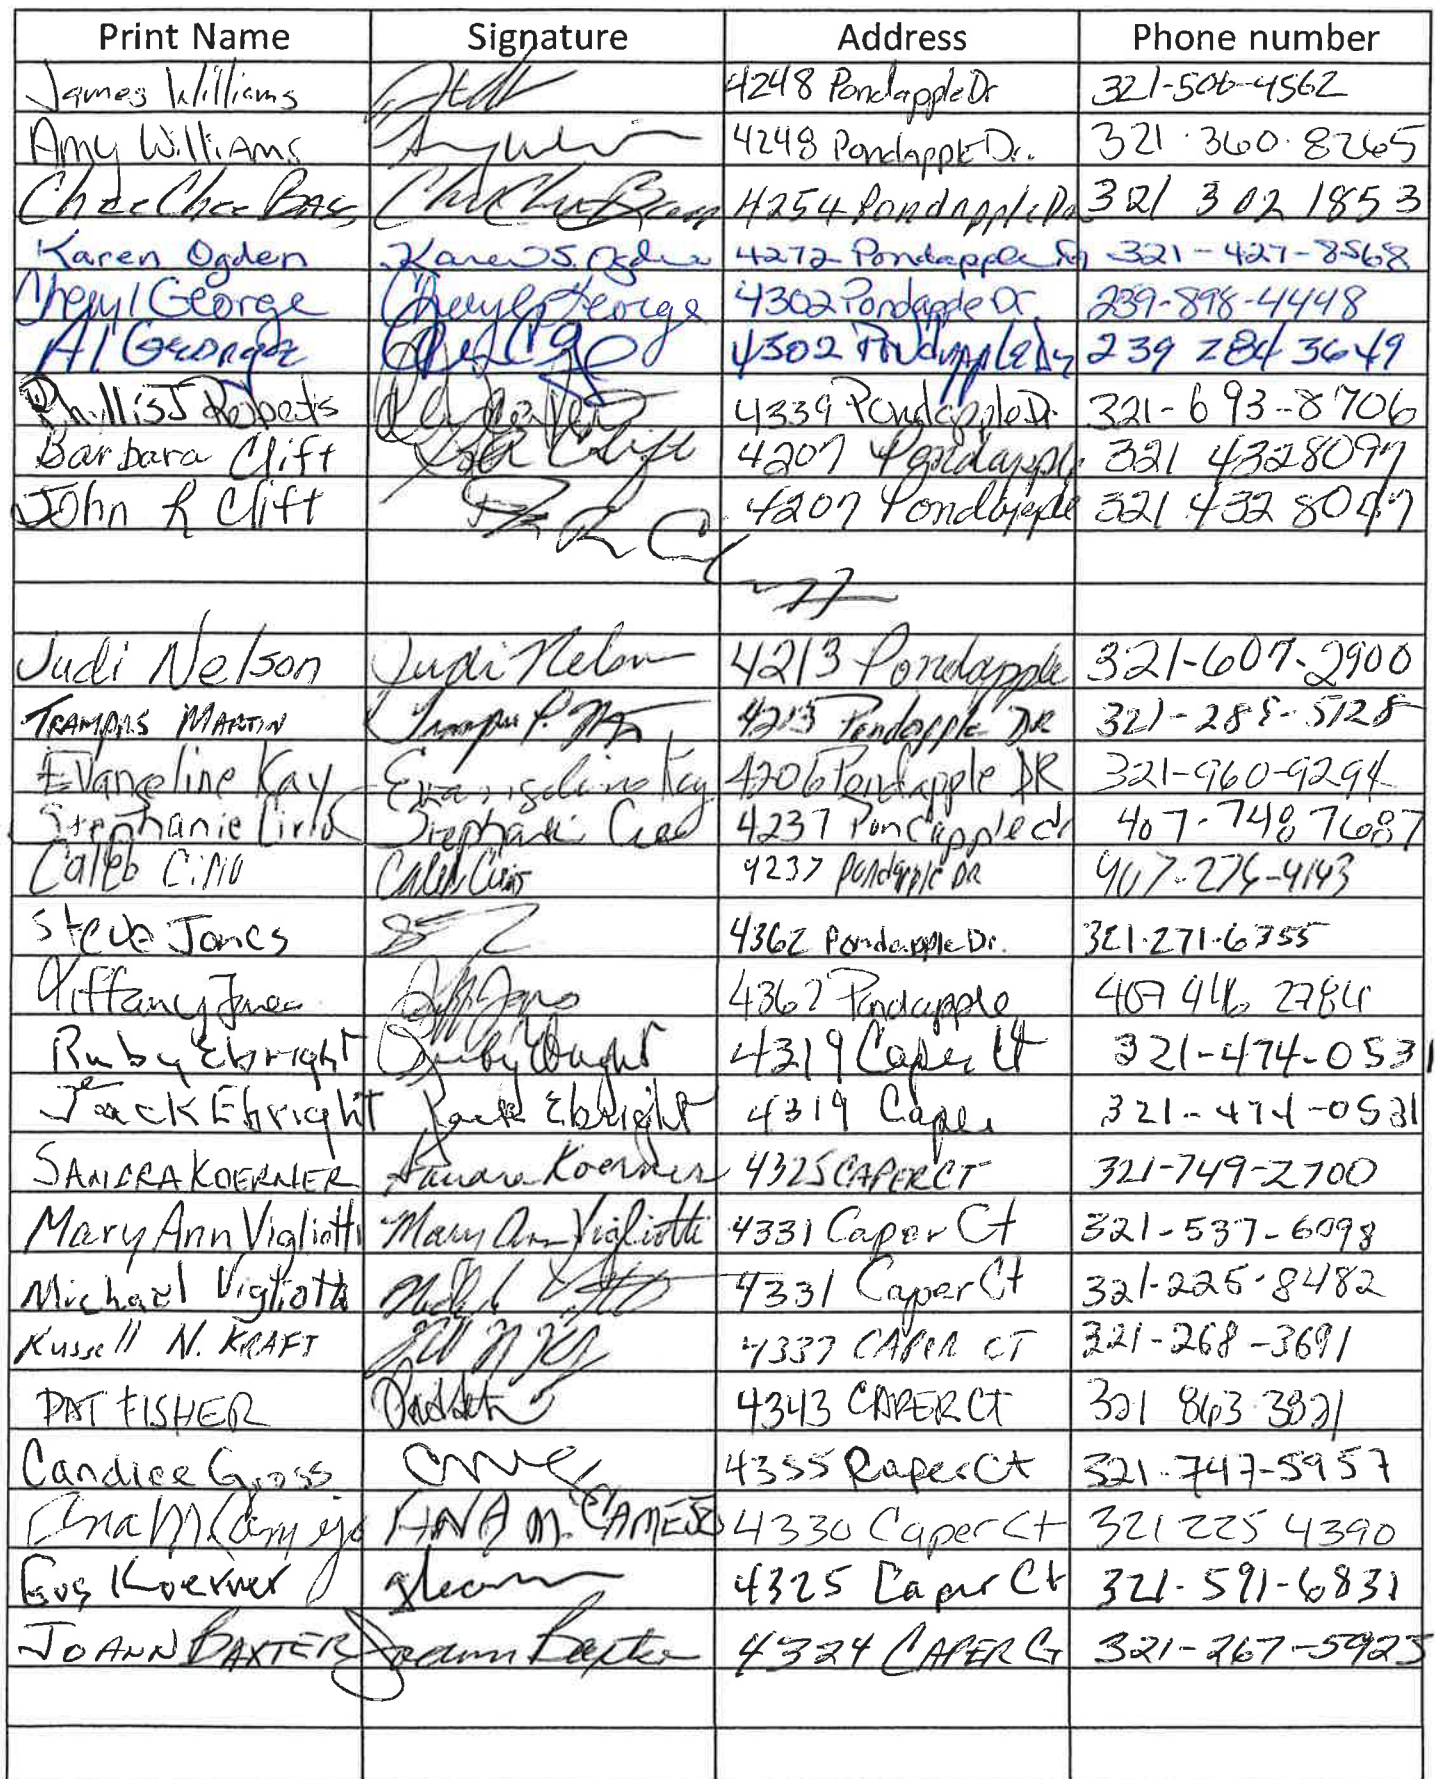 Print Name Signature Address Phone number
James Williams 4248 Pondapple Dr 321-506-4562
Amy Williams 4248 Pondapple Dr. 321·360·8265
Chee Chee Bass Chee Chee Bass 4254 Pondapple Dr 321 302 1853
Karen Ogden Karen S. Ogden 4272 Pondapple 321-427-8568
Cheryl George Cheryl George 4302 Pondapple Dr 239-898-4448
Al George 4302 Pondapple Dr 239 284 3649
Phillis J Roberts 4339 Pondapple Dr 321-693-8706
Barbara Clift Clift 4207 Pondapple 321 4328097
John R Clift 4207 Pondapple 321 432 8047
Judi Nelson Judi Nelson 4213 Pondapple 321-607-2900
Trampas Martin 4213 Pondapple DR 321-288-5128
Evangeline Kay Evangeline Kay 4206 Pondapple DR 321-960-9294
Stephanie Cirio Stephanie 4237 Pondapple dr 407-748 7687
Caleb Cirio Caleb Cirio 4237 Pondapple DR 407-276-4143
Steve Jones 4362 Pondapple Dr. 321·271·6355
Tiffany Jones 4362 Pondapple 407 946 2784
Ruby Ebright Ruby Ebright 4319 Caper Ct 321-474-0531
Jack Ebright Jack Ebright 4319 Caper 321-474-0531
SANDRA KOERNER Sandra Koerner 4325 CAPER CT 321-749-2700
Mary Ann Vigliotti Mary Ann Vigliotti 4331 Caper Ct 321-537-6098
Michael Vigliotti 4331 Caper Ct 321-225-8482
Russell N. KRAFT 4337 CAPER CT 321-268-3691
PAT FISHER 4343 CAPER Ct 321 863 3821
Candice Gross 4355 Caper Ct 321-747-5957
Ana M Camejo ANA M. CAMEJO 4330 Caper Ct 321 225 4390
Gus Koerner 4325 Caper Ct 321-591-6831
JOANN BAXTER Joann Baxter 4324 CAPER Ct 321-267-5923